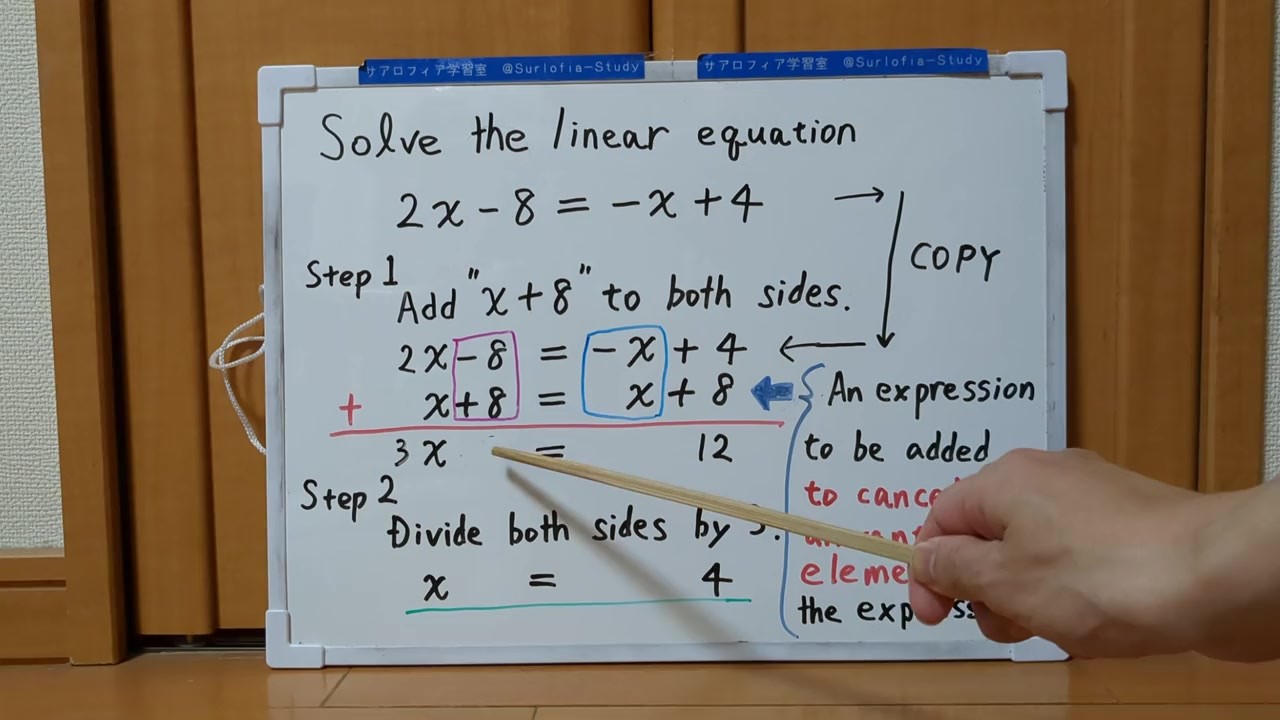 サアロフィア学習室 @Surlofia-Study
サアロフィア学習室 @Surlofia-Study
Solve the linear equation
2x - 8 = -x + 4
COPY
Step 1
Add "x + 8" to both sides.
2x - 8 = -x + 4
+ x + 8 = x + 8
3x = 12
An expression
to be added
to
the
Step 2
Divide both sides by
x = 4